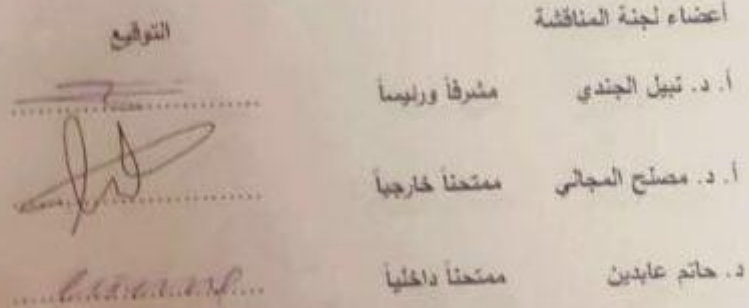 أعضاء لجنة المناقشة التوقيع
أ. د. نبيل الجندي مشرفاً ورئيساً
أ. د. مصلح المجالي ممتحناً خارجياً
د. حاتم عابدين ممتحناً داخلياً